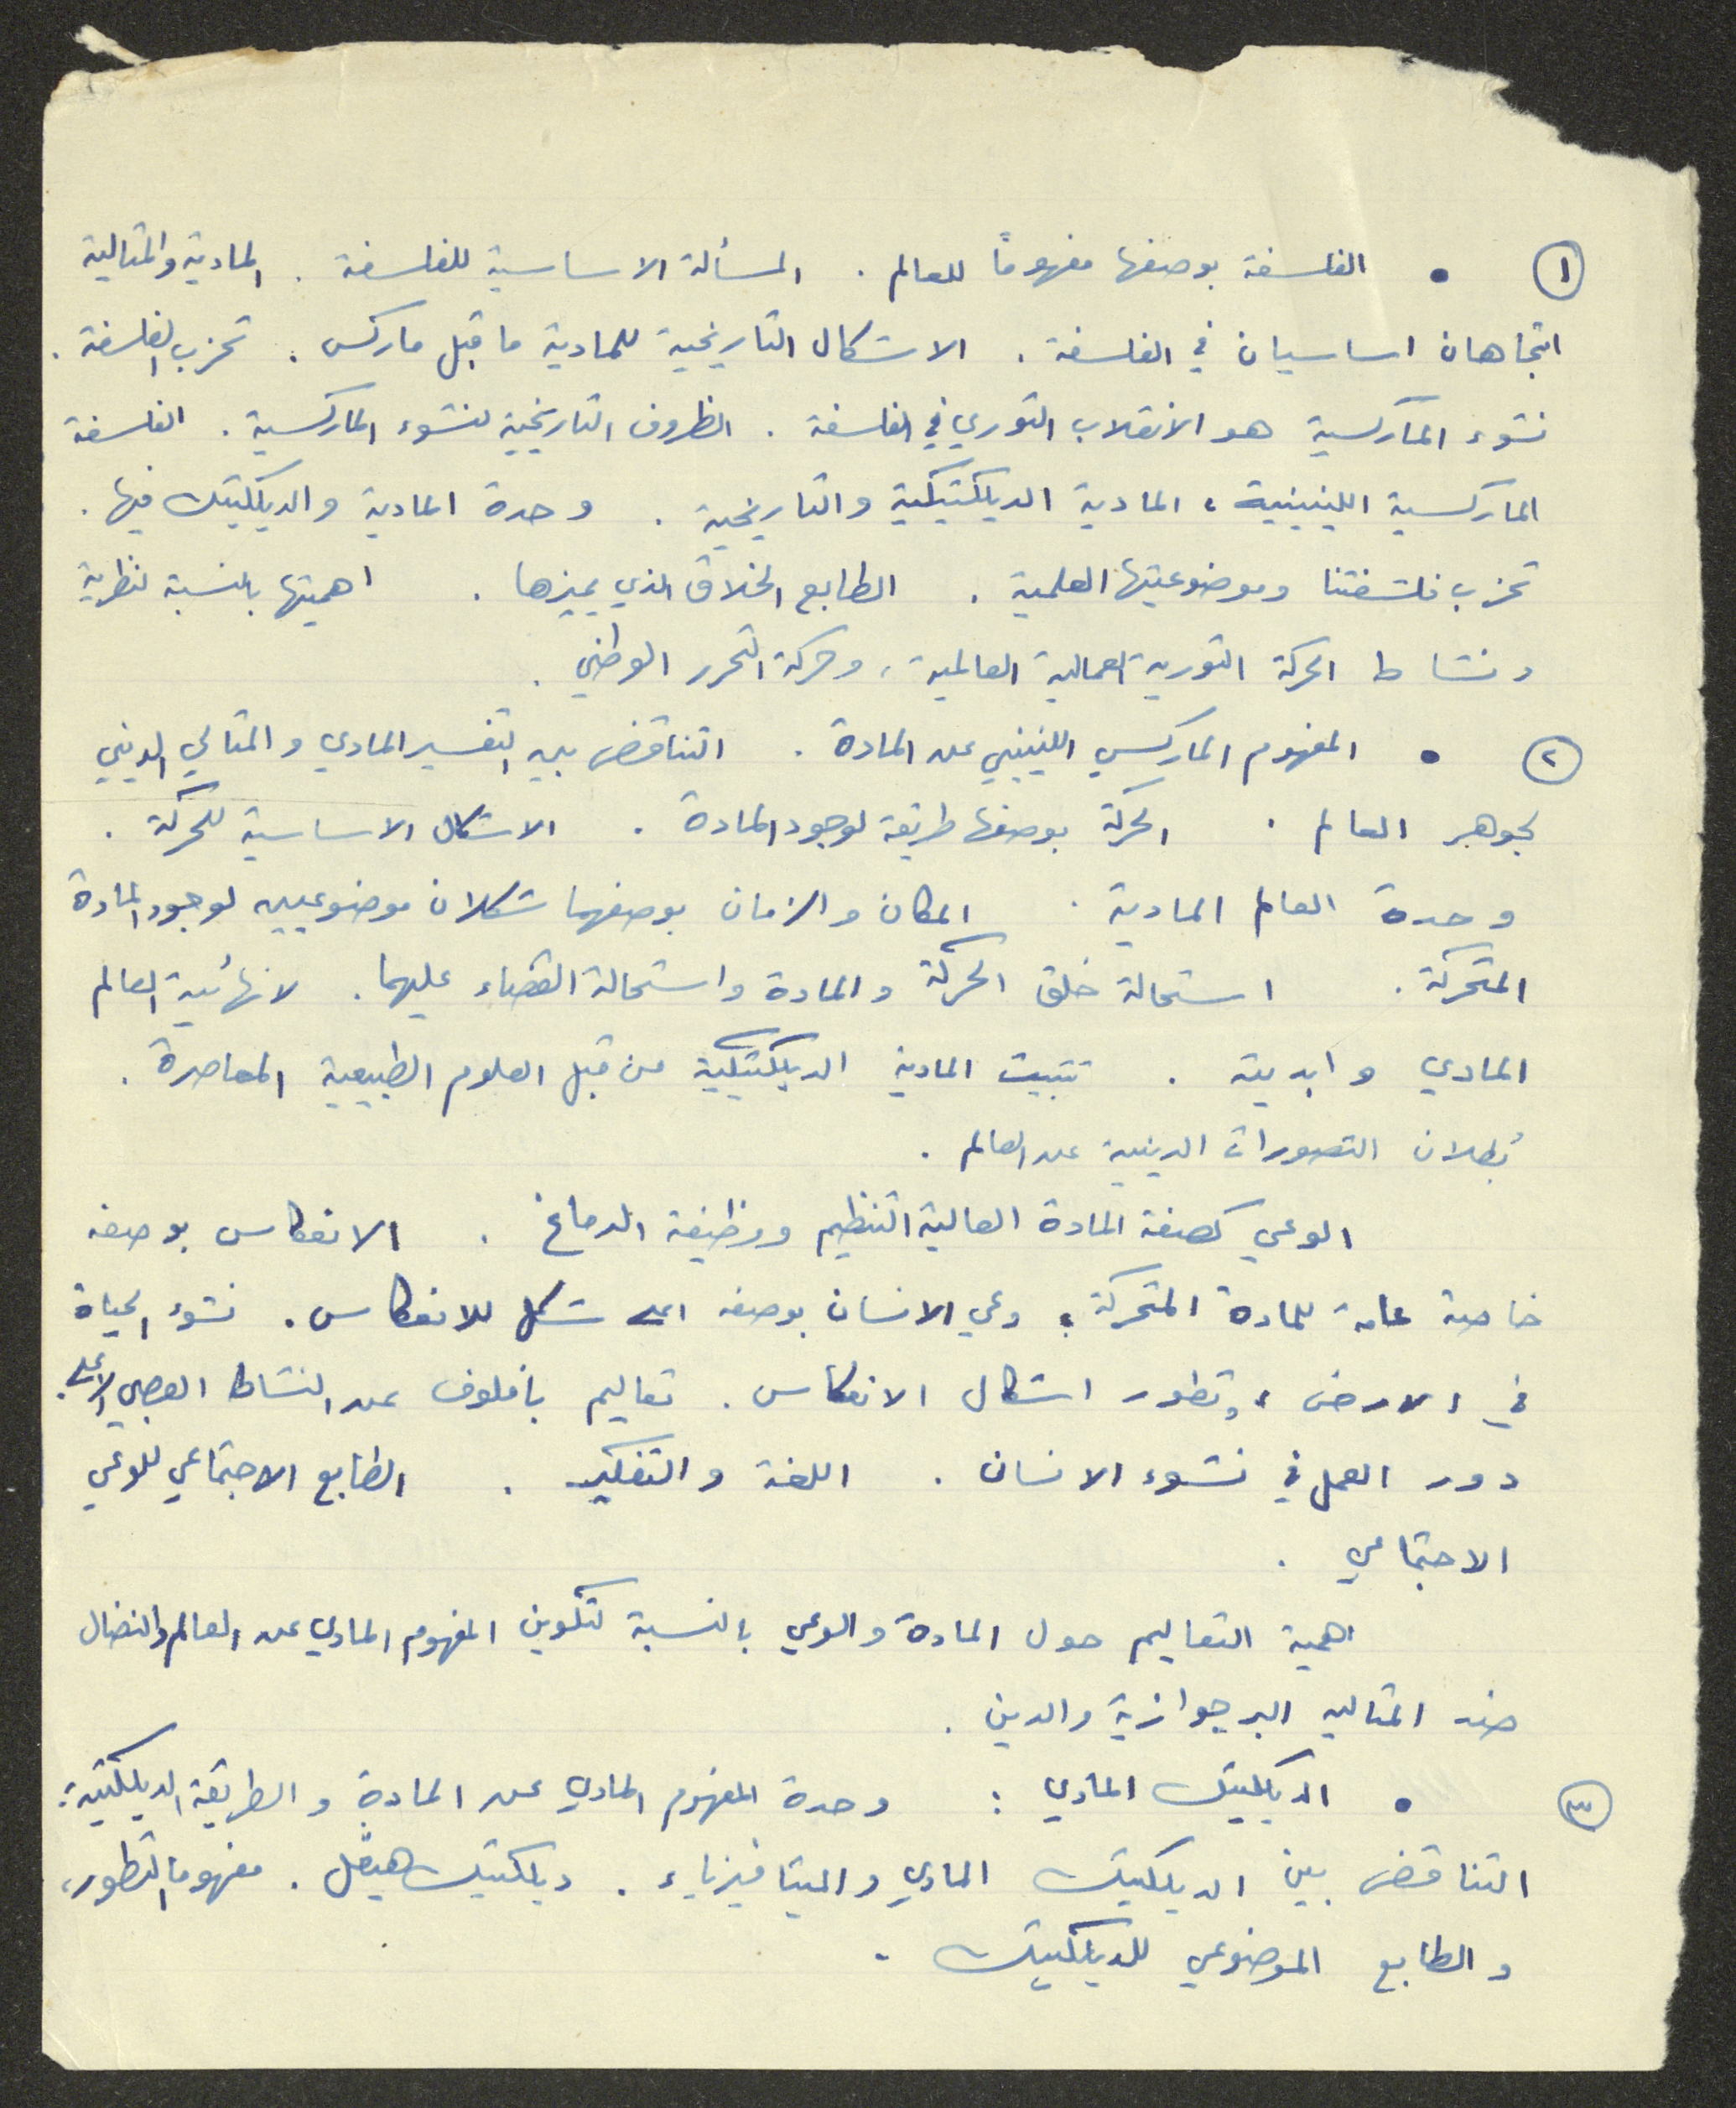 ١ • الفلسفة بوصفها مفهوماً للعالم . المسألة الاساسية للفلسفة . المادية والمثالية
اتجاهان اساسيان في الفلسفة . الاشكال التاريخية للمادية ما قبل ماركس . تحزب الفلسفة .
نشوء الماركسية هو الانقلاب الثوري في الفلسفة . الظروف التاريخية لنشوء الماركسية . الفلسفة
الماركسية اللينينية ، المادية الديلكتيكية والتاريخية . وحدة المادية والديلكتيك فيها .
تحزب فلسفتنا وموضوعيتها العلمية . الطابع الخلاق الذي يميزها . اهميتها بالنسبة لنظرية
ونشاط الحركة الثورية العمالية العالمية ، وحركة التحرر الوطني .
٢ • المفهوم الماركسي اللينيني عن المادة . التناقض بين التفسير المادي والمثالي الديني
لجوهر العالم . الحركة بوصفها طريقة لوجود المادة . الاشكال الاساسية للحركة .
وحدة العالم المادية . المكان والزمان بوصفهما شكلان موضوعيين لوجود المادة
المتحركة . استحالة خلق الحركة والمادة واستحالة القضاء عليهما . لانهائية العالم
المادي وابديته . تثبيت المادية الديلكتيكية من قبل العلوم الطبيعية المعاصرة .
بُطلان التصورات الدينية عن العالم .
الوعي كصفة المادة العالية التنظيم ووظيفة الدماغ . الانعكاس بوصفه
خاصة عامة للمادة المتحركة ؛ وعي الانسان بوصفه اعلى شكل للانعكاس . نشوء الحياة
في الارض ، وتطور اشكال الانعكاس . تعاليم بافلوف عن النشاط العصبي الاعلى .
دور العمل في نشوء الانسان . اللغة والتفكير . الطابع الاجتماعي للوعي
الاجتماعي .
اهمية التعاليم حول المادة والوعي بالنسبة لتكوين المفهوم المادي عن العالم والنضال
ضد المثاليه البرجوازية والدين .
٣ • الديلكتيك المادي : وحدة المفهوم المادي عن المادة والطريقة الديلكتية :
التناقض بين الديلكتيك المادي والميتافيزياء . ديلكتيك هيغل . مفهوما التطور ،
والطابع الموضوعي للديلكتيك .